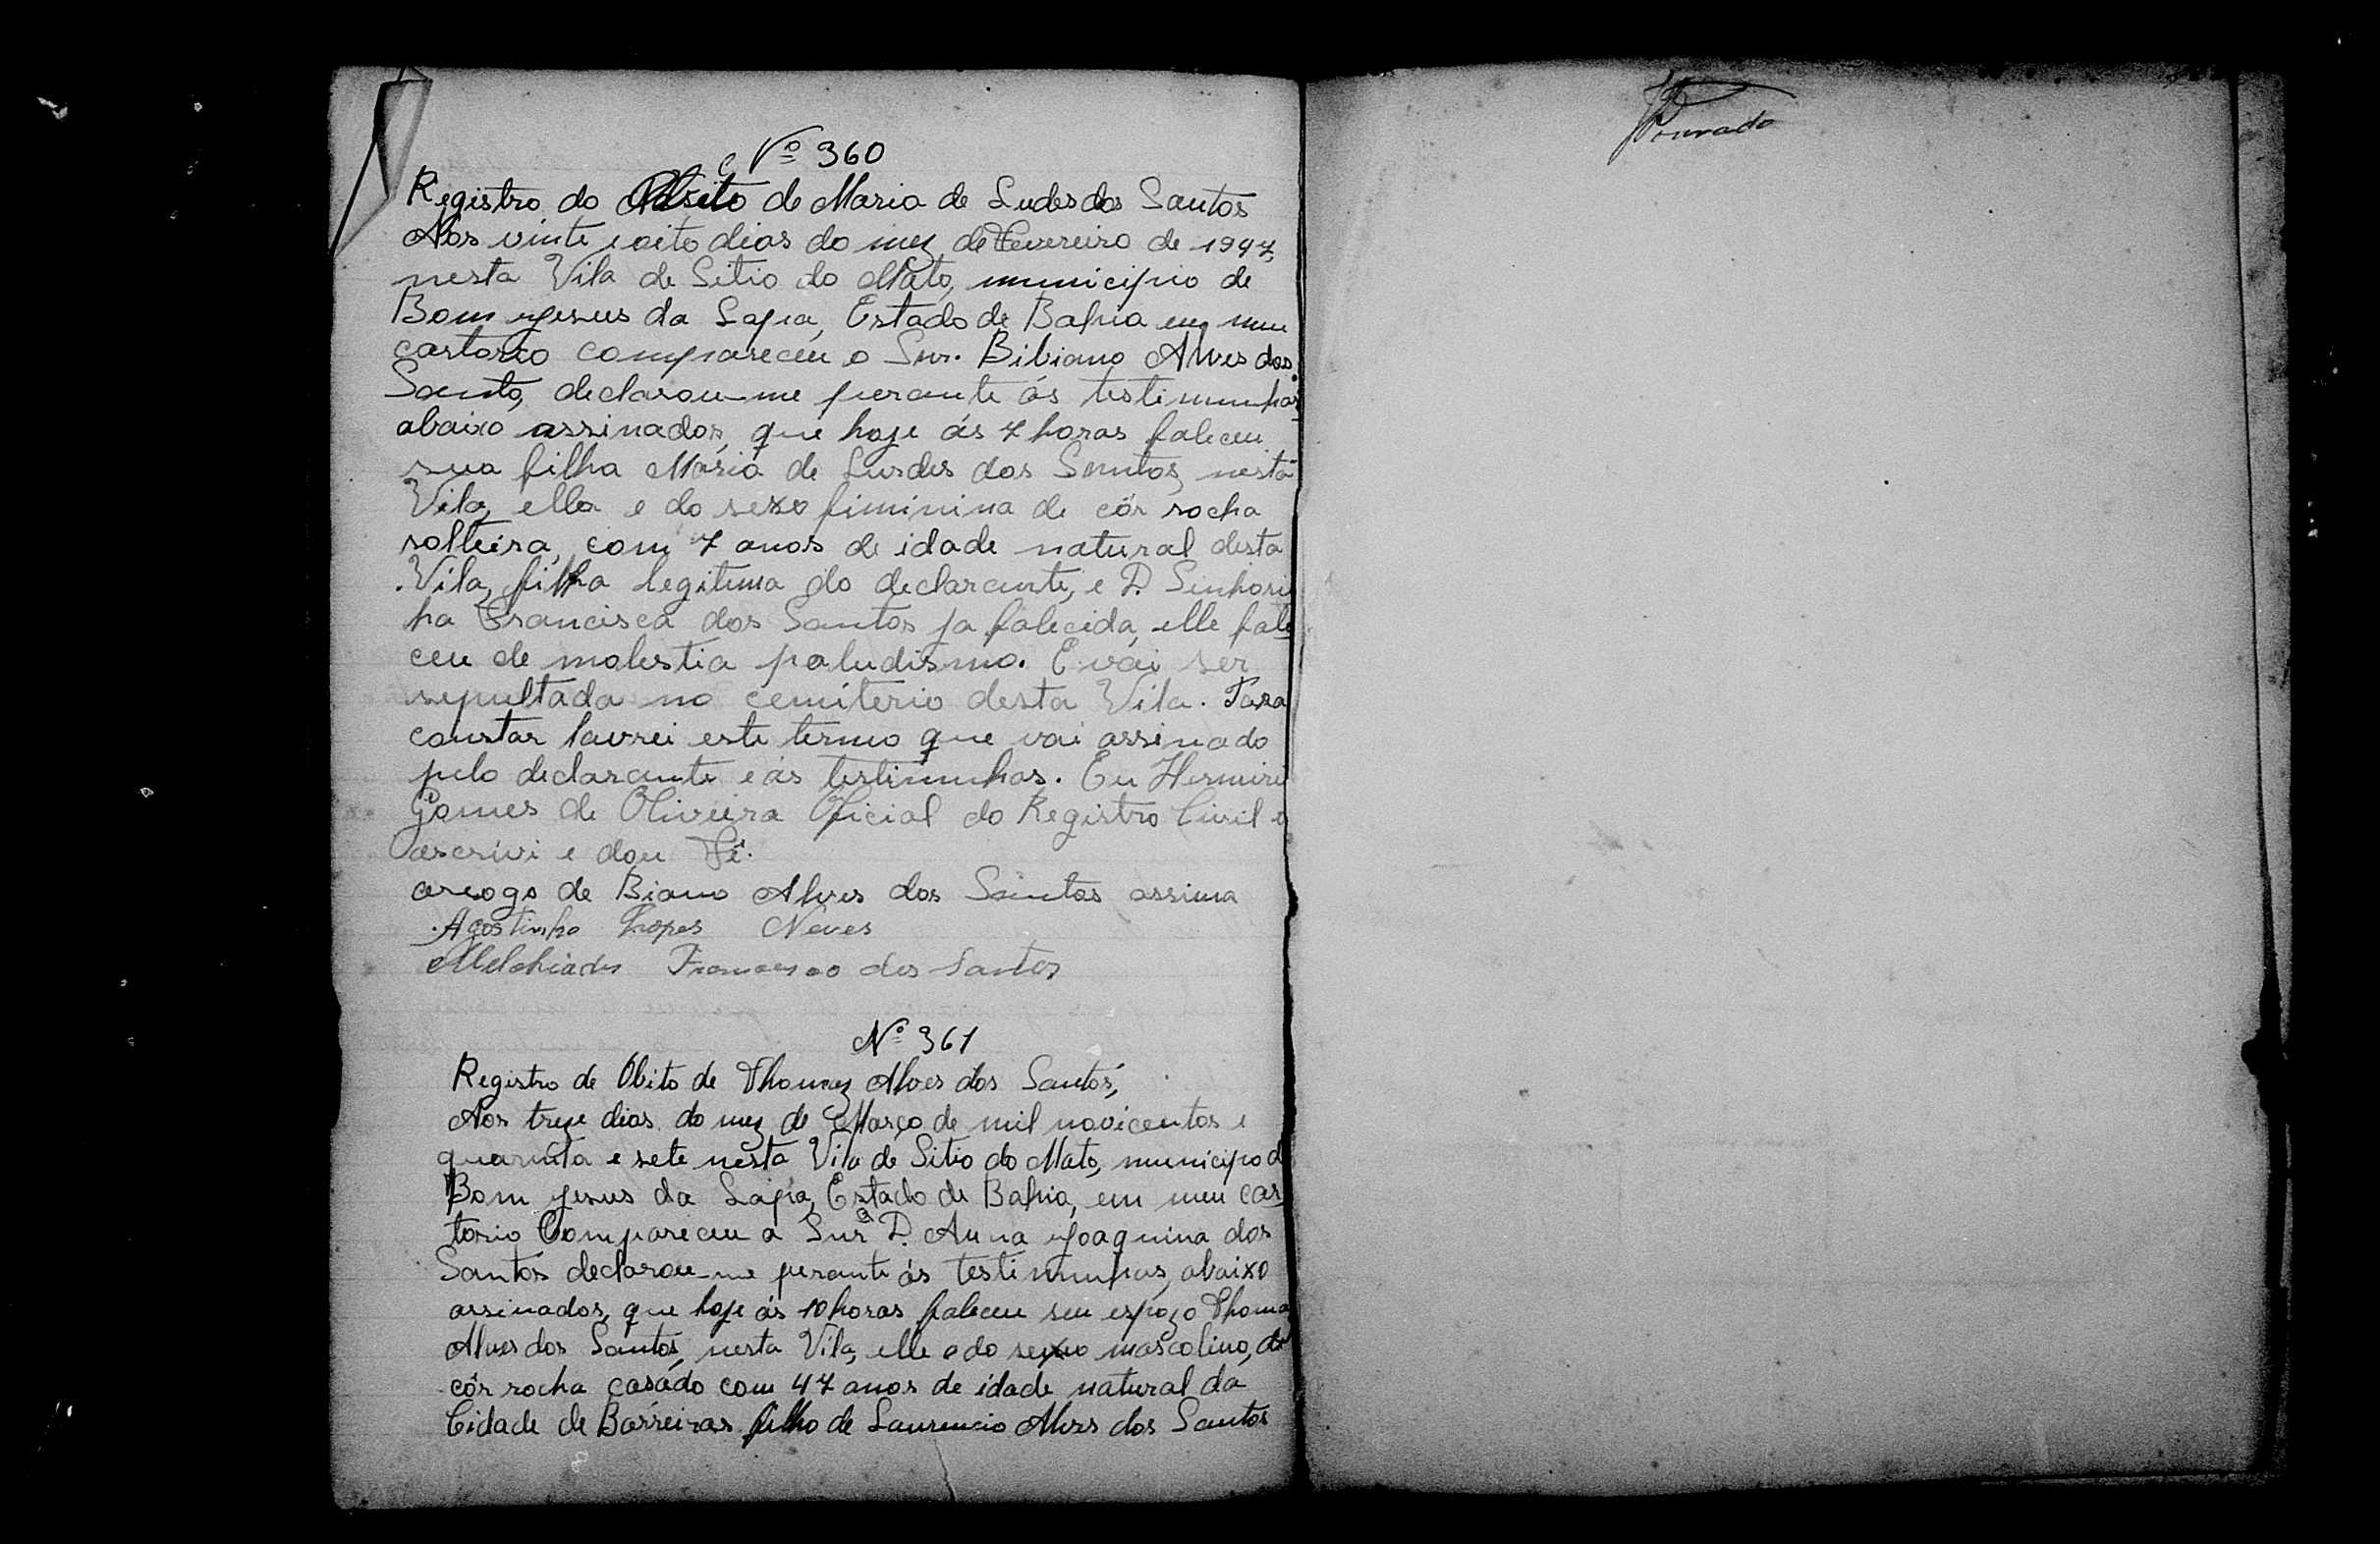 Nº 360
Registro do Obito de Maria de Ludes dos Santos
Aos vinte e oito dias do mez de Fevereiro de 1947,
nesta Vila de Sitio do Mato, municipio de
Bom Jesus da Lapa, Estado de Bahia em meu
cartorio compareceu o Snr. Bibiano Alves dos
Santo, declarou-me perante ás testimunhas
abaixo assinados, que hoje ás 7 horas faleceu
sua filha Maria de Lurdes dos Santos, nesta
Vila, ella e do sexo fiminina de côr rocha
solteira, com 7 anos de idade natural desta
Vila, filha legitima do declarante, e D. Sinhori
ha Francisca dos Santos ja falecida, elle fale
ceu de molestia paludismo. E vai ser
sepultada no cemiterio desta Vila. Para
constar lavrei este termo que vai assinado
pelo declarante e ás testimunhas. Eu
Gomes de Oliveira Oficial do Registro Civil o
escrivi e dou Fé.
arogo de Biano Alves dos Santos assina
Agostinho Lopes Neves
Melchiades Francisco dos Santos
Nº 361
Registro de Obito de Thomaz Alves dos Santos,
Aos treze dias do mez de Março de mil novicentos e
quarenta e sete nesta Vila de Sitio do Mato, municipo d
Bom Jesus da Lapa, Estado de Bahia, em meu car
torio Compareceu a Snrª D. Anna Joaquina dos
Santos declarou-me perante ás testimunhas, abaixo
assinados, que hoje ás 10 horas faleceu seu espozo Thoma
Alves dos Santos, nesta Vila, elle e do sexo mascolino, de
côr rocha casádo com 47 anos de idade natural da
Cidade de Barreiras filho de Laurencio Alves dos Santos